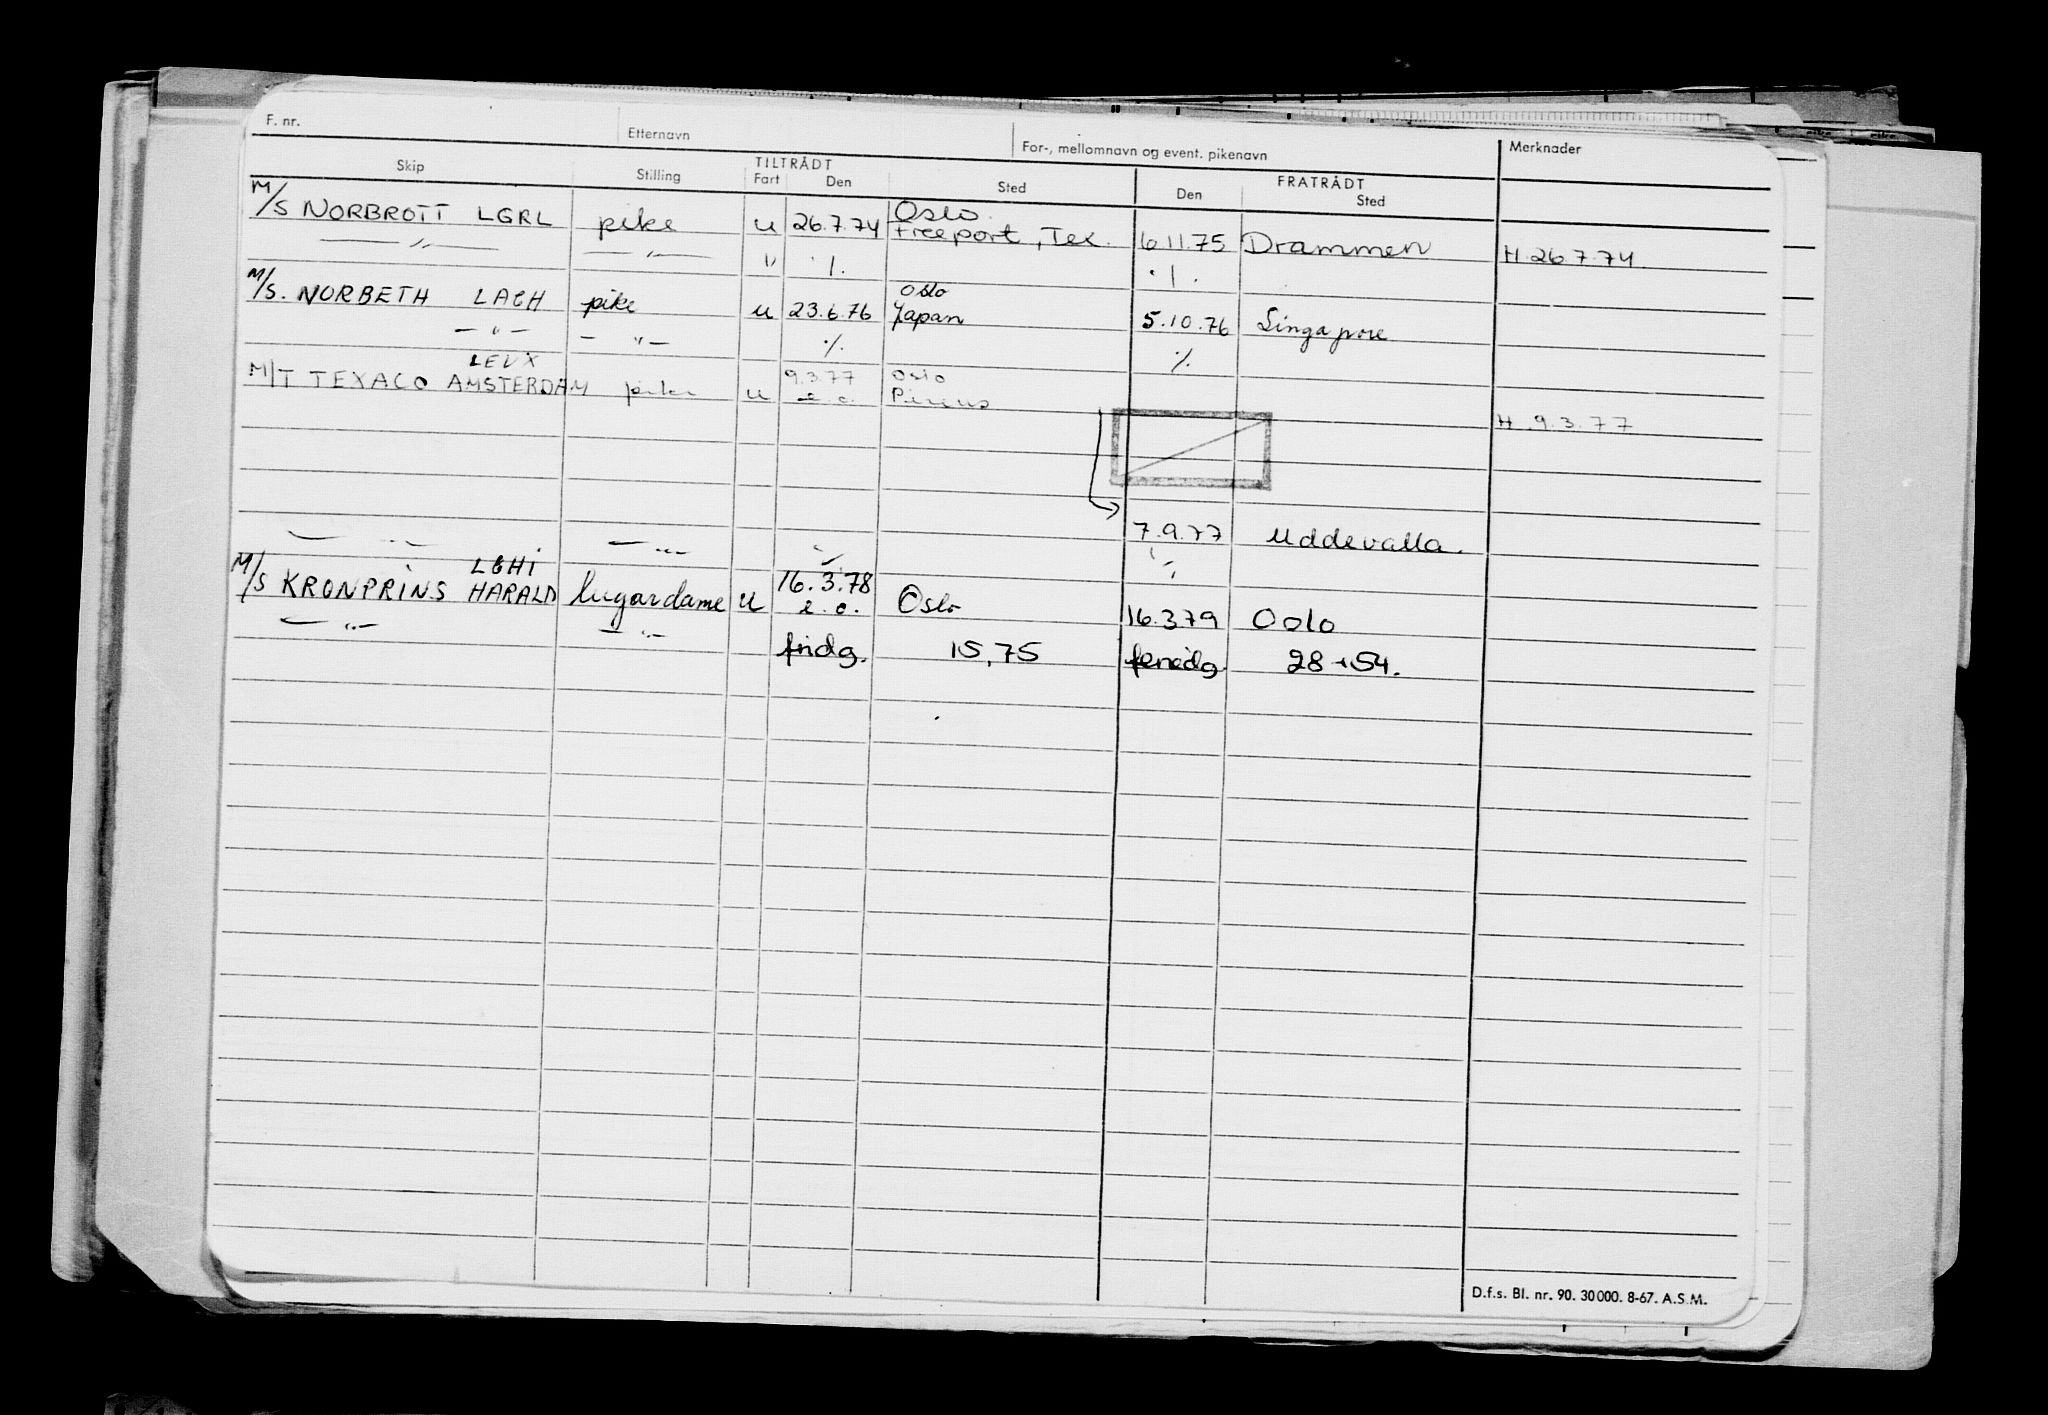 F. nr. Etternavn For-, mellomnavn og event. pikenavn Merknader
Skip Stilling TILTRÅDT FRATRÅDT
Fart Den Sted Den Sted
M/S NORBROTT LGRL pike u 26.7.74 Oslo Freeport, Tex. 6.11.75 Drammen H. 26.7.74.
— " — — " — " ./. ./.
M/S. NORBETH LACH pike u 23.6.76 Oslo Japan 5.10.76 Singapore
— " — — " — ./. ./.
LEUX
M/T TEXACO AMSTERDAM pike u 9.3.77 e.o. Oslo Pireus H. 9.3.77
7.9.77 Uddevalla.
— " — — " —
LGHI
M/S KRONPRINS HARALD lugardame u 16.3.78 e.o. Oslo 16.3.79 Oslo
— " — — " — fridg. 15,75 feriedg. 28+54.
D.f.s. Bl. nr. 90. 30000. 8-67. A.S.M.